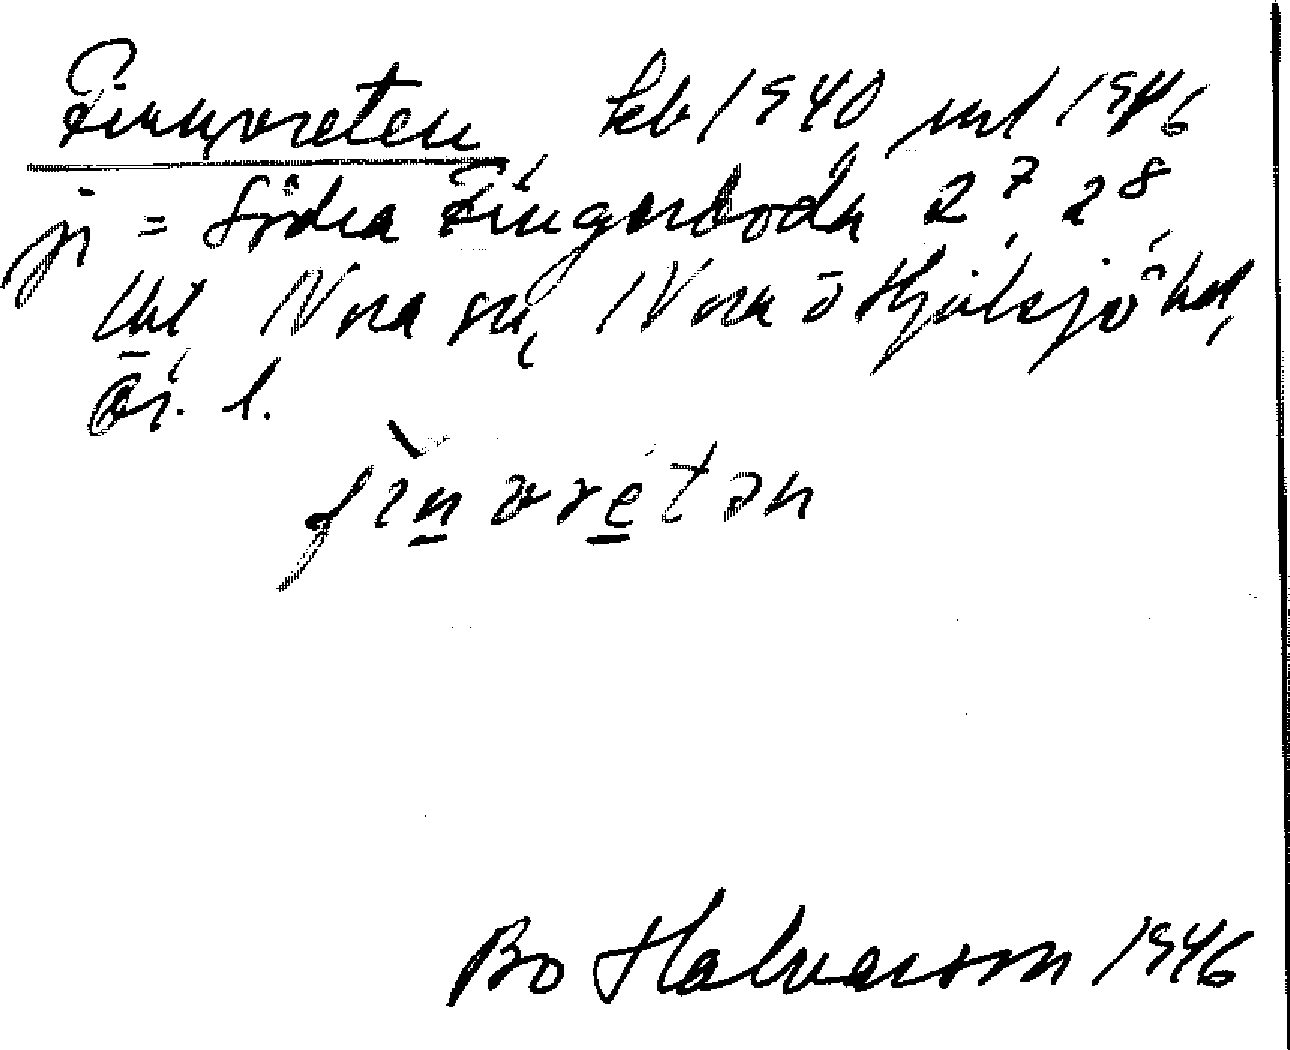 Finnvreten, kb 1940 mtl 1946
jr = Södra Fingerboda 2⁷ 2⁸
Nora sn, Nora o Hjulsjö hd,
Ör. l.
finvretən
Bo Halvarson 1946